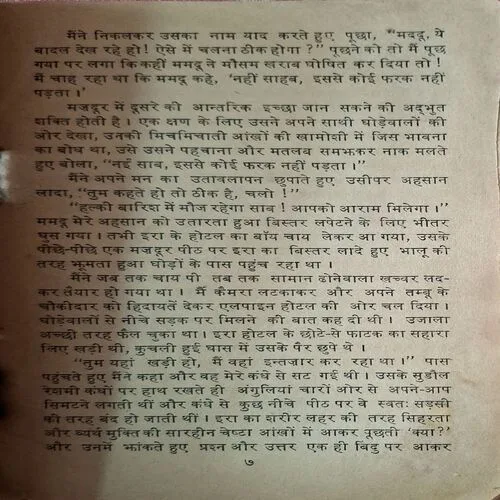 मैंने निकलकर उसका नाम याद करते हुए पूछा, "मदद्, ये
बादल देख रहे हो! ऐसे में चलना ठीक होगा ?" पूछने को तो मैं पूछ
गया पर लगा कि कहीं ममदू ने मौसम खराब घोषित कर दिया तो !
मैं चाह रहा था कि ममदू कहे, 'नहीं साहब, इससे कोई फरक नहीं
पड़ता ।'
मजदूर में दूसरे की आन्तरिक इच्छा जान सकने की अद्‌भुत
शक्ति होती है । एक क्षण के लिए उसने अपने साथी घोड़ेवालों की
ओर देखा, उनकी मिचमिचाती आंखों की खामोशी में जिस भावना
का बोध था, उसे उसने पहचाना और मतलब समझकर नाक मलते
हुए बोला, "नई साब, इससे कोई फरक नहीं पड़ता ।"
मैंने अपने मन का उतावलापन छुपाते हुए उसीपर अहसान
लादा, "तुम कहते हो तो ठीक है, चलो !"
"हल्की बारिश में मौज रहेगा साब ! आपको आराम मिलेगा ।"
ममदू मेरे अहसान को उतारता हुआ बिस्तर लपेटने के लिए भीतर
घुस गया । तभी इरा के होटल का बॉय चाय लेकर आ गया, उसके
पीछे-पीछे एक मजदूर पीठ पर इरा का बिस्तर लादे हुए भालू की
तरह झूमता हुआ घोड़ों के पास पहुंच रहा था ।
मैंने जब तक चाय पी तब तक सामान ढोनेवाला खच्चर लद-
कर तैयार हो गया था । मैं कैमरा लटकाकर और अपने तम्बू के
चौकीदार को हिदायतें देकर एलपाइन होटल की ओर चल दिया ।
घोड़ेवालों से नीचे सड़क पर मिलने की बात कह दी थी । उजाला
अच्छी तरह फैल चुका था । इरा होटल के छोटे-से फाटक का सहारा
लिए खड़ी थी, कुचली हुई घास में उसके पैर छुपे थे ।
"तुम यहां खड़ी हो, मैं वहां इन्तजार कर रहा था ।" पास
पहुंचते हुए मैंने कहा और वह मेरे कंधे से सट गई थी । उसके सुडौल
रेशमी कंधों पर हाथ रखते ही अंगुलियां चारों ओर से अपने-आप
सिमटने लगती थीं और कंधे से कुछ नीचे पीठ पर वे स्वतः सड़सी
की तरह बंद हो जाती थीं । इरा का शरीर लहर की तरह सिहरता
और व्यर्थ मुक्ति की सारहीन चेष्टा आंखों में आकर पूछती 'क्या ?'
और उनमें झांकते हुए प्रश्न और उत्तर एक ही बिंदु पर आकर
७